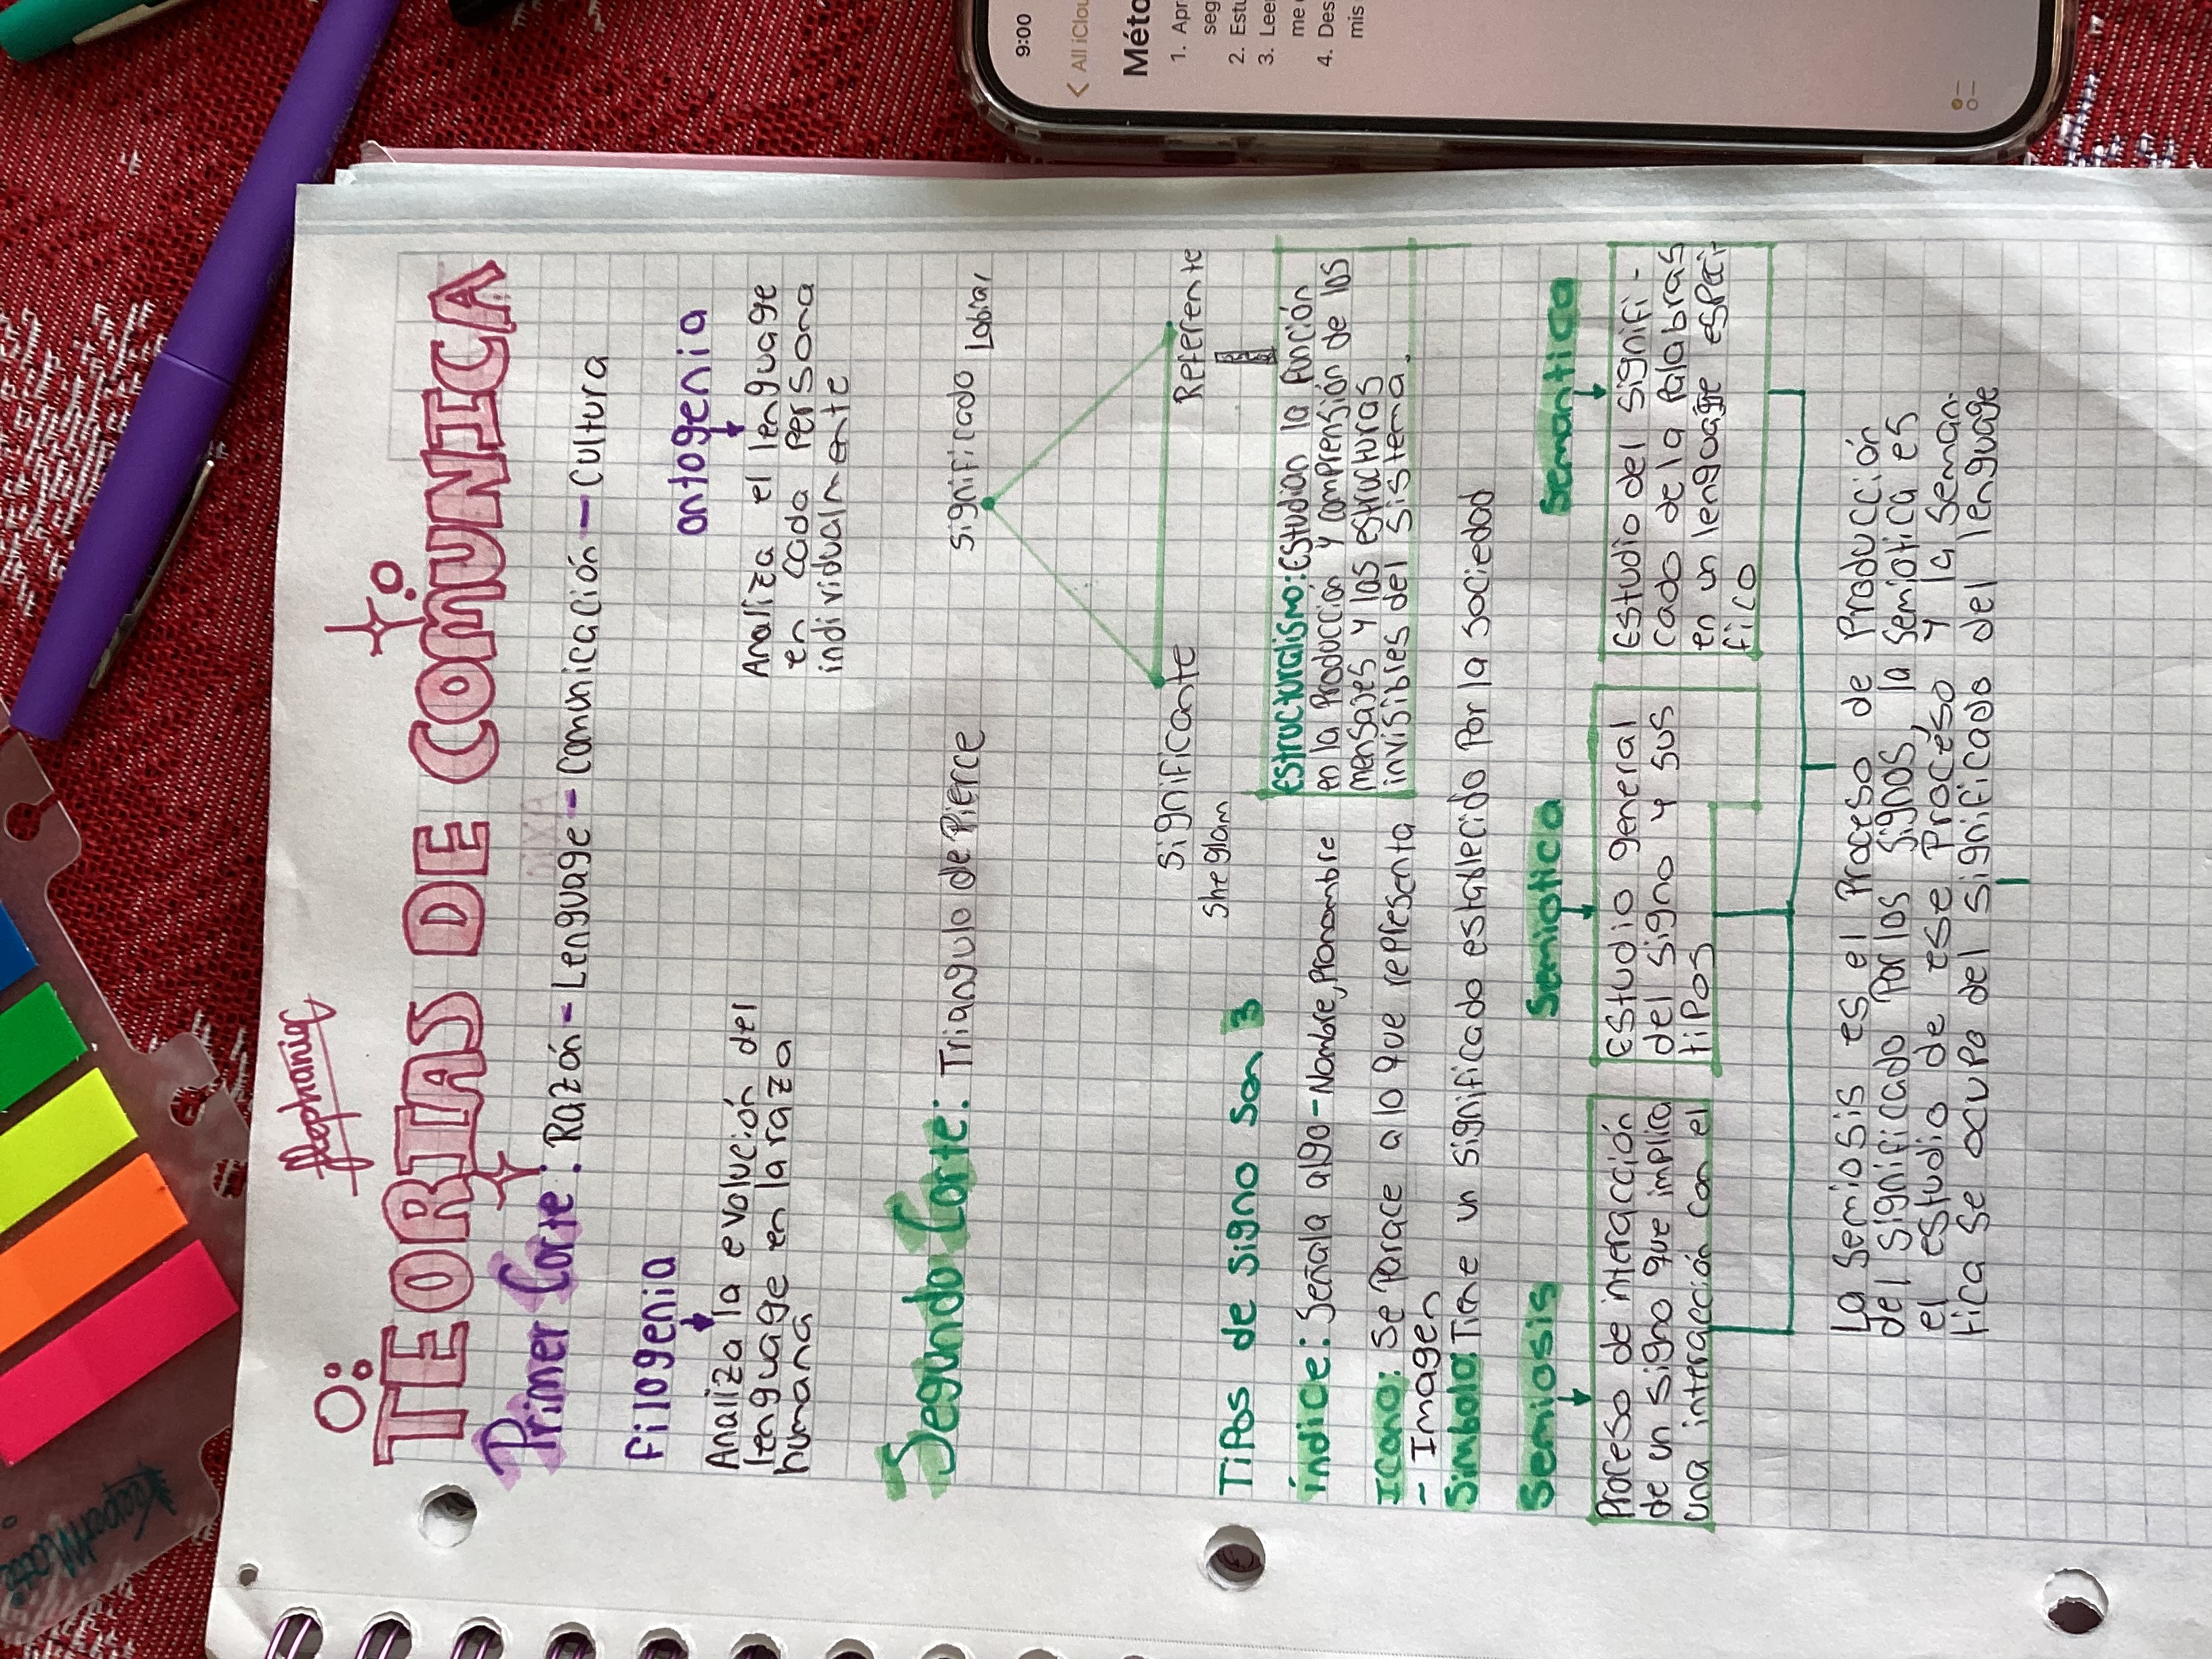 Stephania
TEORIAS DE COMUNICA
Primer Corte: Razón - Lenguage - Comunicación - Cultura
Filogenia
Analiza la evolución del
lenguage en la raza
humana
ontogenia
Analiza el lenguage
en cada persona
individualmente
Segundo Corte: Triangulo de Pierce
significado Labial
significante
Sheglam
Referente
Tipos de signo son 3
índice: Señala algo - Nombre, Pronombre
Icono: Se parace a lo que representa
- Imagen
Simbolo: Tiene un significado establecido por la sociedad
Estructuralismo: Estudian la función
en la Producción y comprensión de los
mensajes y las estructuras
invisibles del sistema.
Semiosis
Proceso de interacción
de un signo que implica
una interacción con el
Semiotica
Estudio general
del signo y sus
tipos
Semantica
Estudio del signifi-
cado de la Palabras
en un lenguaje especi-
fico
La Semiosis es el Proceso de Producción
del significado Por los signos, la semiotica es
el estudio de ese Proceso y la seman-
tica se ocupa del significado del lenguage
9:00
All iClou
Méto
1. Apr
seg
2. Estu
3. Lee
me
4. Des
mis